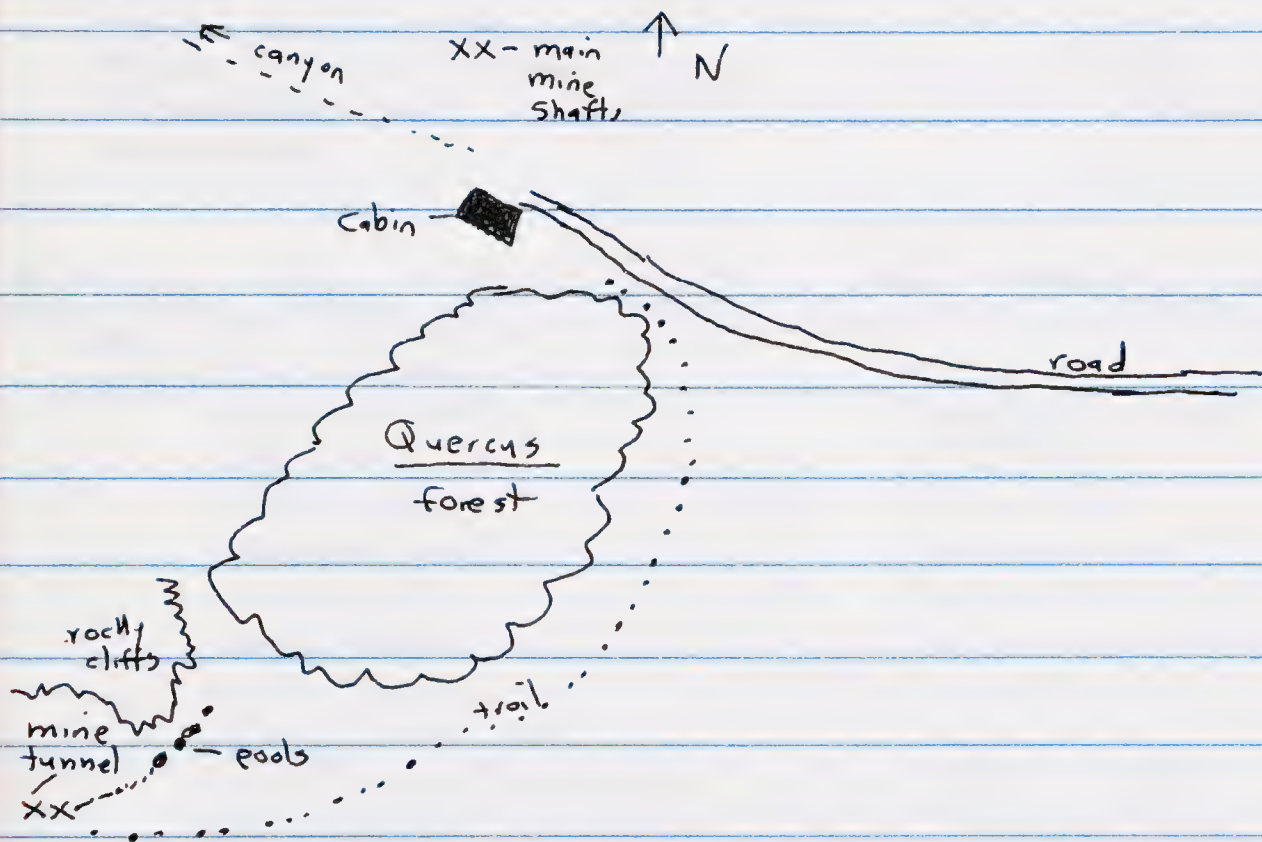 canyon
XX - main
mine
shafts
N
cabin
road
Quercus
forest
rocky
cliffs
trail
mine
tunnel
pools
XX